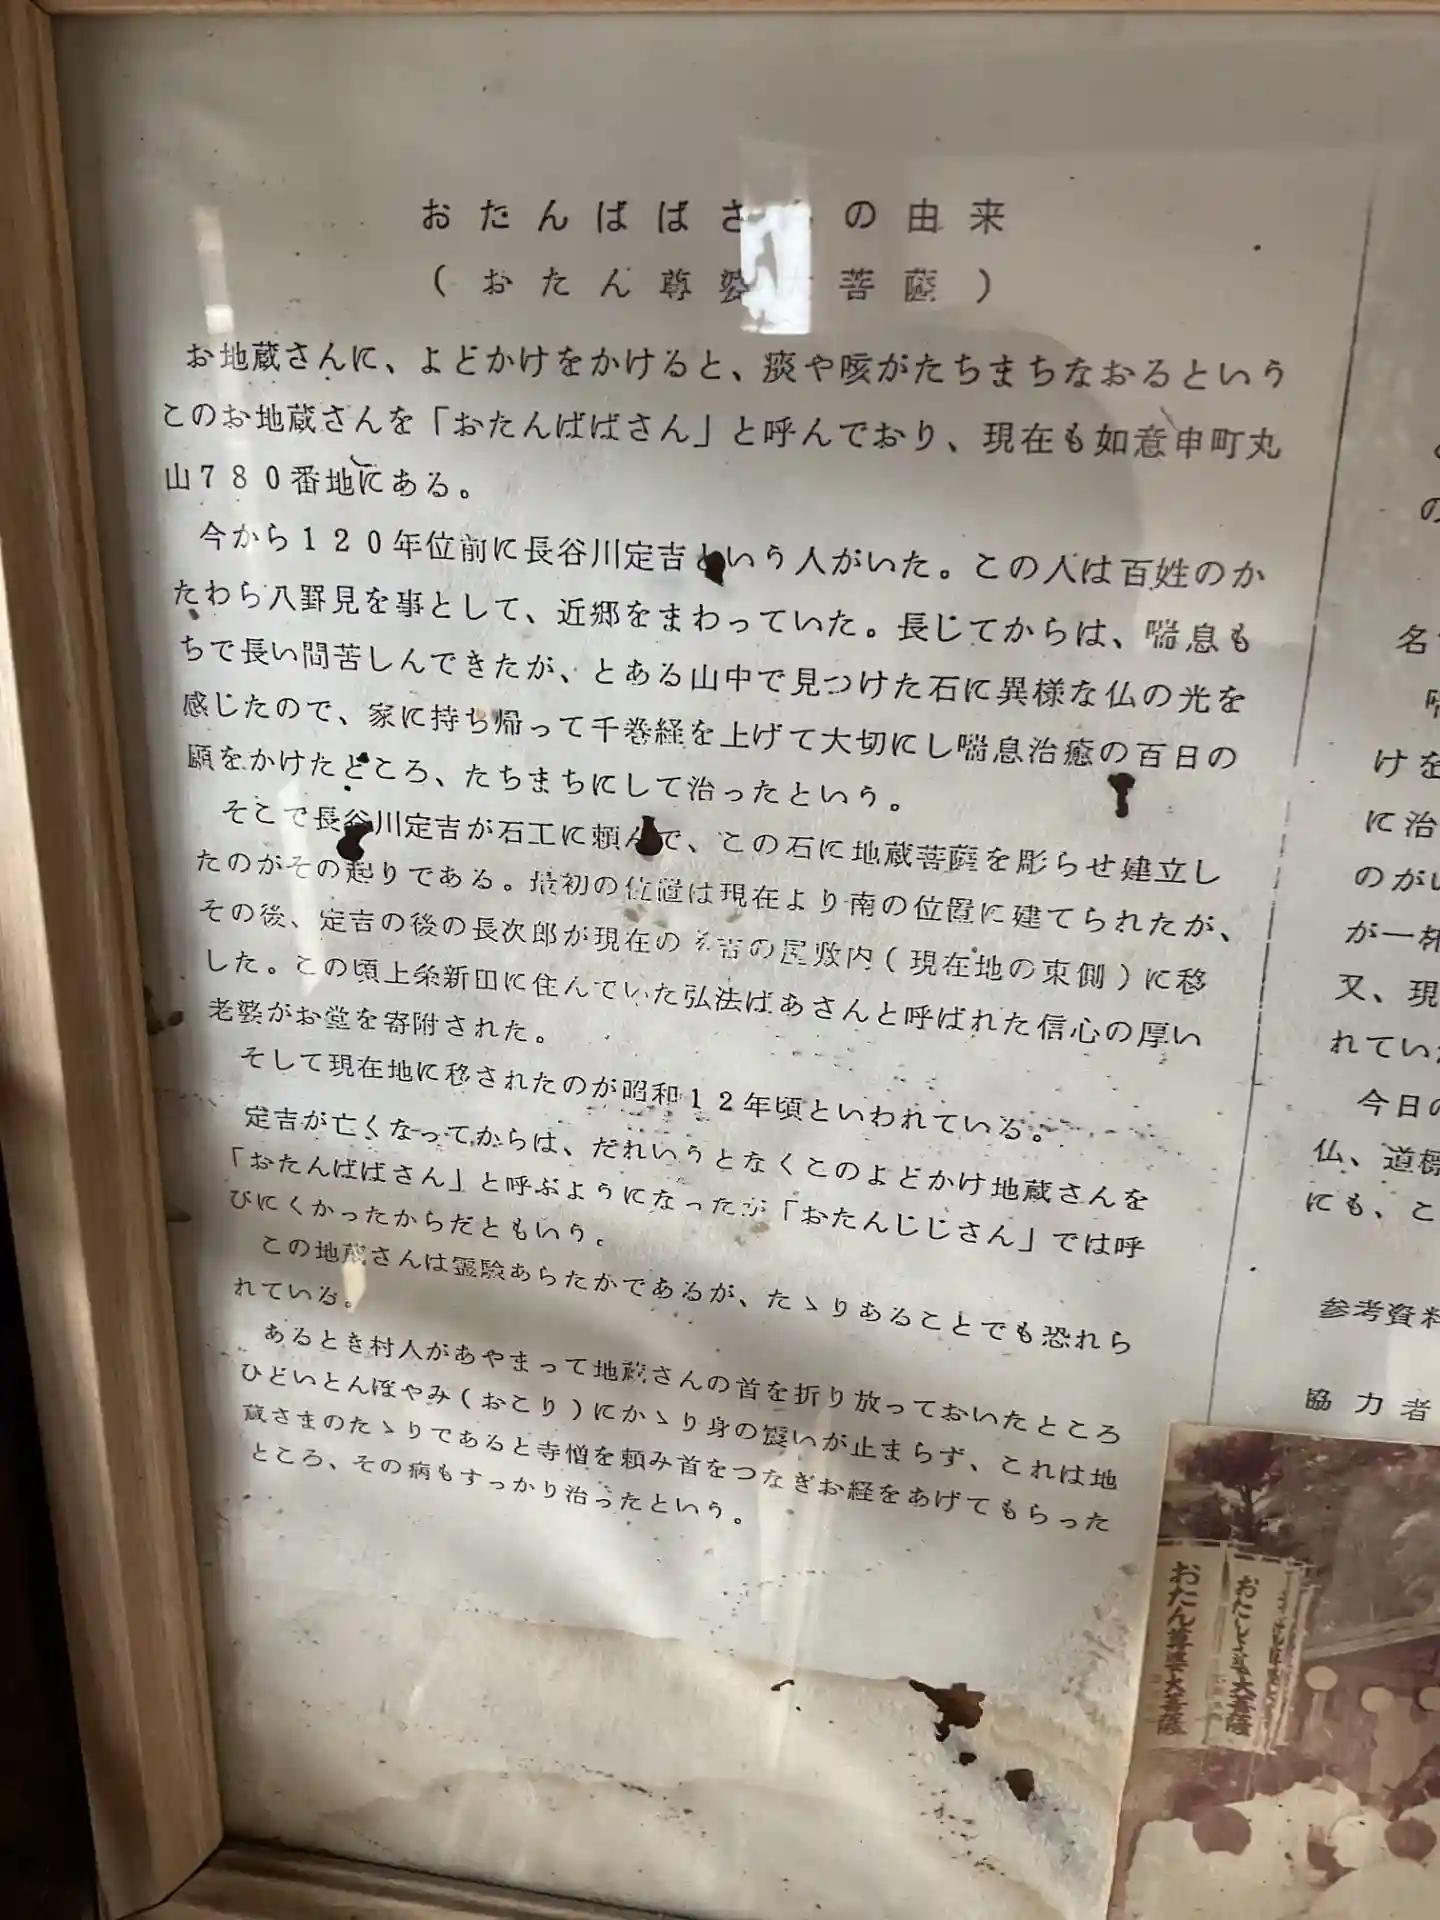 おたんばばさ の由来
(おたん尊婆 菩薩)
お地蔵さんに、よどかけをかけると、痰や咳がたちまちなおるという
このお地蔵さんを「おたんばばさん」と呼んでおり、現在も如意申町丸
山780番地にある。
今から120年位前に長谷川定吉という人がいた。この人は百姓のか
たわら八野見を事として、近郷をまわっていた。長じてからは、喘息も
ちで長い間苦しんできたが、とある山中で見つけた石に異様な仏の光を
感じたので、家に持ち帰って千巻経を上げて大切にし喘息治癒の百日の
願をかけたところ、たちまちにして治ったという。
そこで長谷川定吉が石工に頼んで、この石に地蔵菩薩を彫らせ建立し
たのがその起りである。最初の位置は現在より南の位置に建てられたが、
その後、定吉の後の長次郎が現在の 吉の屋敷内(現在地の東側)に移
した。この頃上条新田に住んでいた弘法ばあさんと呼ばれた信心の厚い
老婆がお堂を寄附された。
そして現在地に移されたのが昭和12年頃といわれている。
定吉が亡くなってからは、だれいうとなくこのよどかけ地蔵さんを
「おたんばばさん」と呼ぶようになったが「おたんじじさん」では呼
びにくかったからだともいう。
この地蔵さんは霊験あらたかであるが、たゝりあることでも恐れら
れている。
あるとき村人があやまって地蔵さんの首を折り放っておいたところ
ひどいとんぼやみ(おこり)にかゝり身の震いが止まらず、これは地
蔵さまのたゝりであると寺僧を頼み首をつなぎお経をあげてもらった
ところ、その病もすっかり治ったという。
の
名
けを
に治
のがい
が一杯
又、現
れてい
今日の
仏、道標
にも、こ
参考資料
協力者
おたん尊婆大菩薩
大菩薩